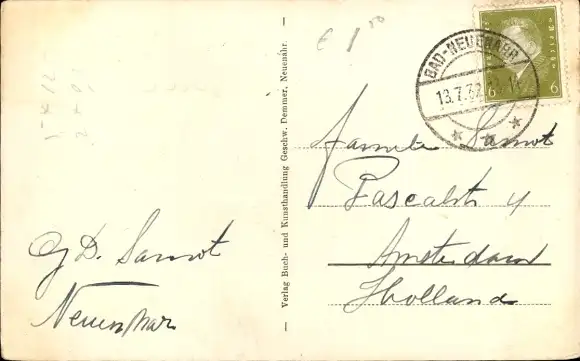 € 1.50
BAD-NEUENAHR
13.7.32
6 6
Verlag Buch- und Kunsthandlung Geschw. Demmer, Neuenahr.
Familie Samot
Pascalstr 4
Amsterdam
Holland
D. Samot
Neuenahr